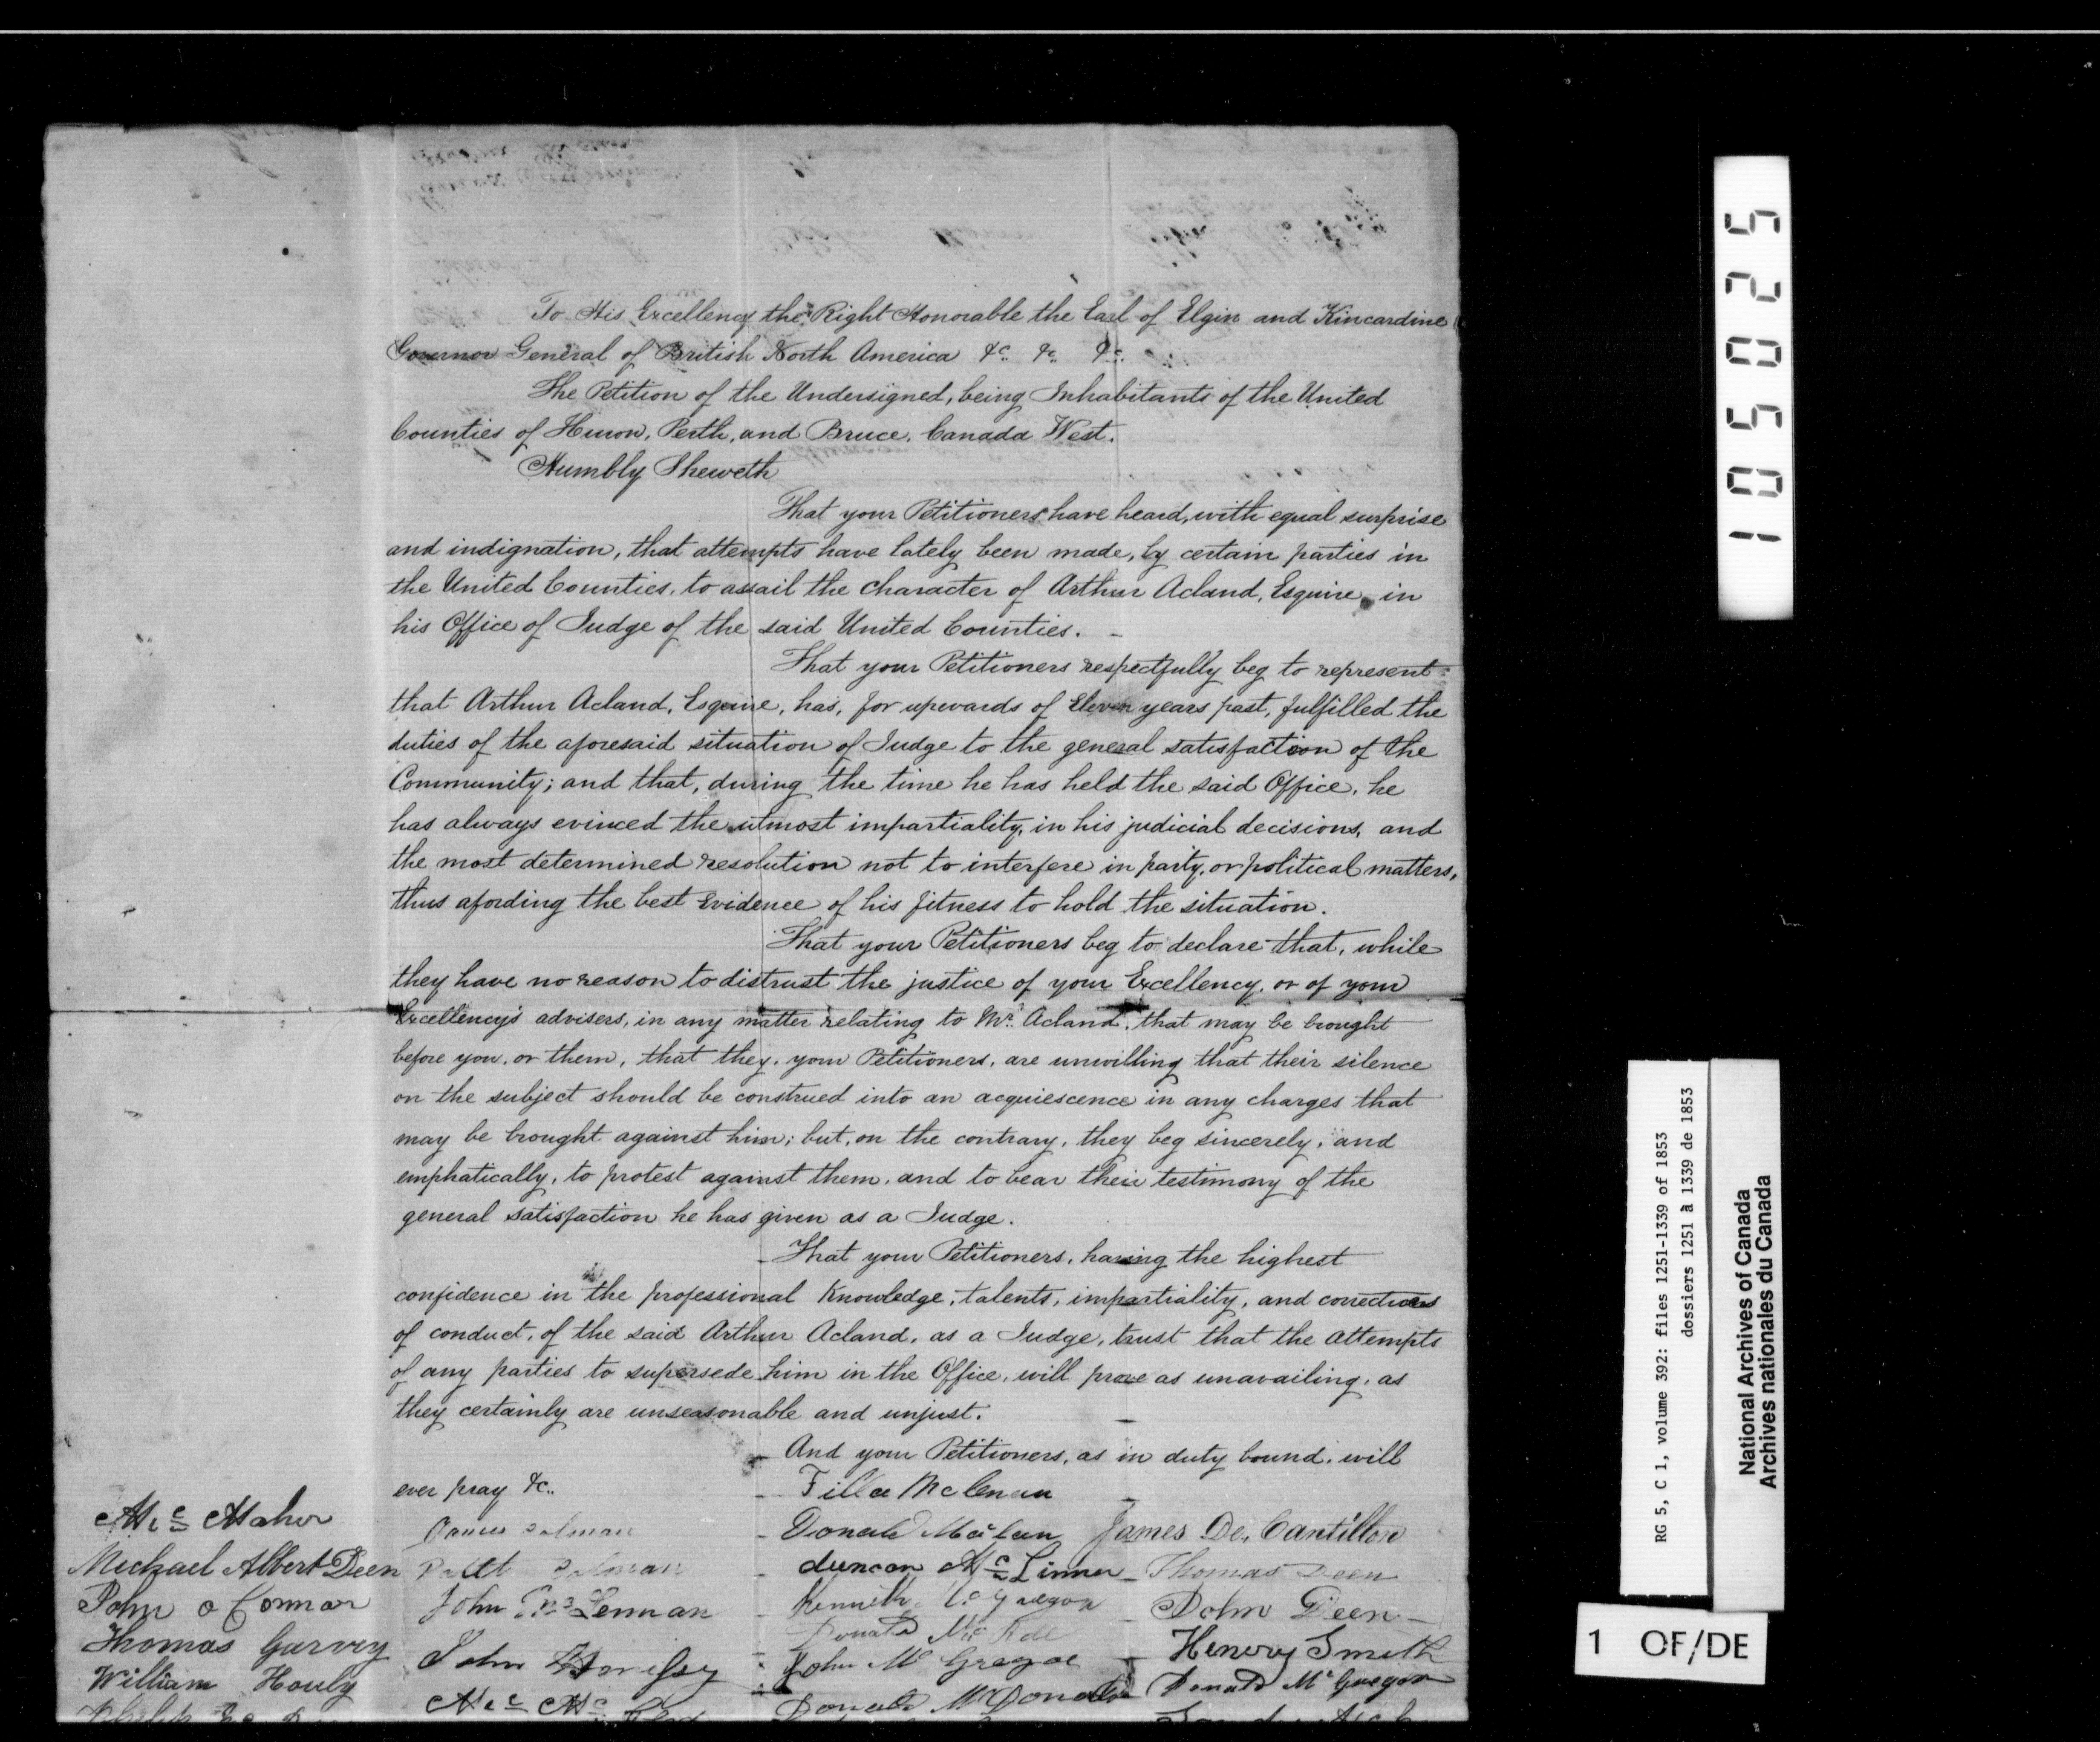 To His Excellency the Right Honorable the Earl of Elgin and Kincardine
Governor General of British North America &c. &c. &c.
The Petition of the Undersigned, being Inhabitants of the United
Counties of Huron, Perth, and Bruce, Canada West.
Humbly Sheweth
That your Petitioners have heard, with equal surprise
and indignation, that attempts have lately been made, by certain parties in
the United Counties, to assail the character of Arthur Acland, Esquire, in
his Office of Judge of the said United Counties. –
That your Petitioners respectfully beg to represent
that Arthur Acland, Esquire, has, for upwards of Eleven years past, fulfilled the
duties of the aforesaid situation of Judge to the general satisfaction of the
Community; and that, during the time he has held the said Office, he
has always evinced the utmost impartiality, in his judicial decisions, and
the most determined resolution not to interfere in party, or political matters,
thus afording the best evidence of his fitness to hold the situation.
That your Petitioners beg to declare that, while
they have no reason to distrust the justice of your Excellency, or of your
Excellency's advisers, in any matter relating to Mr. Acland, that may be brought
before you, or them, that they, your Petitioners, are unwilling that their silence
on the subject should be construed into an acquiescence in any charges that
may be brought against him; but, on the contrary, they beg sincerely, and
emphatically, to protest against them, and to bear their testimony of the
general satisfaction he has given as a Judge.
That your Petitioners, having the highest
confidence in the professional Knowledge, talents, impartiality, and correctness
of conduct, of the said Arthur Acland, as a Judge, trust that the attempts
of any parties to supersede him in the Office, will prove as unavailing, as
they certainly are unseasonable and unjust.
And your Petitioners, as in duty bound, will
ever pray &c.
Mic Maher
Michael Albert Deen
John o Connor
Thomas Garvey
William Houly
James
John Lennan
John
Donald
duncan
Kenneth
Donald
John McGregor
Donald McDonald
James De. Cantillon
Thomas Deen
John Deen
Henery Smith
Donald McGregor
105025
RG 5, C 1, volume 392: files 1251-1339 of 1853
dossiers 1251 à 1339 de 1853
National Archives of Canada
Archives nationales du Canada
1 OF/DE